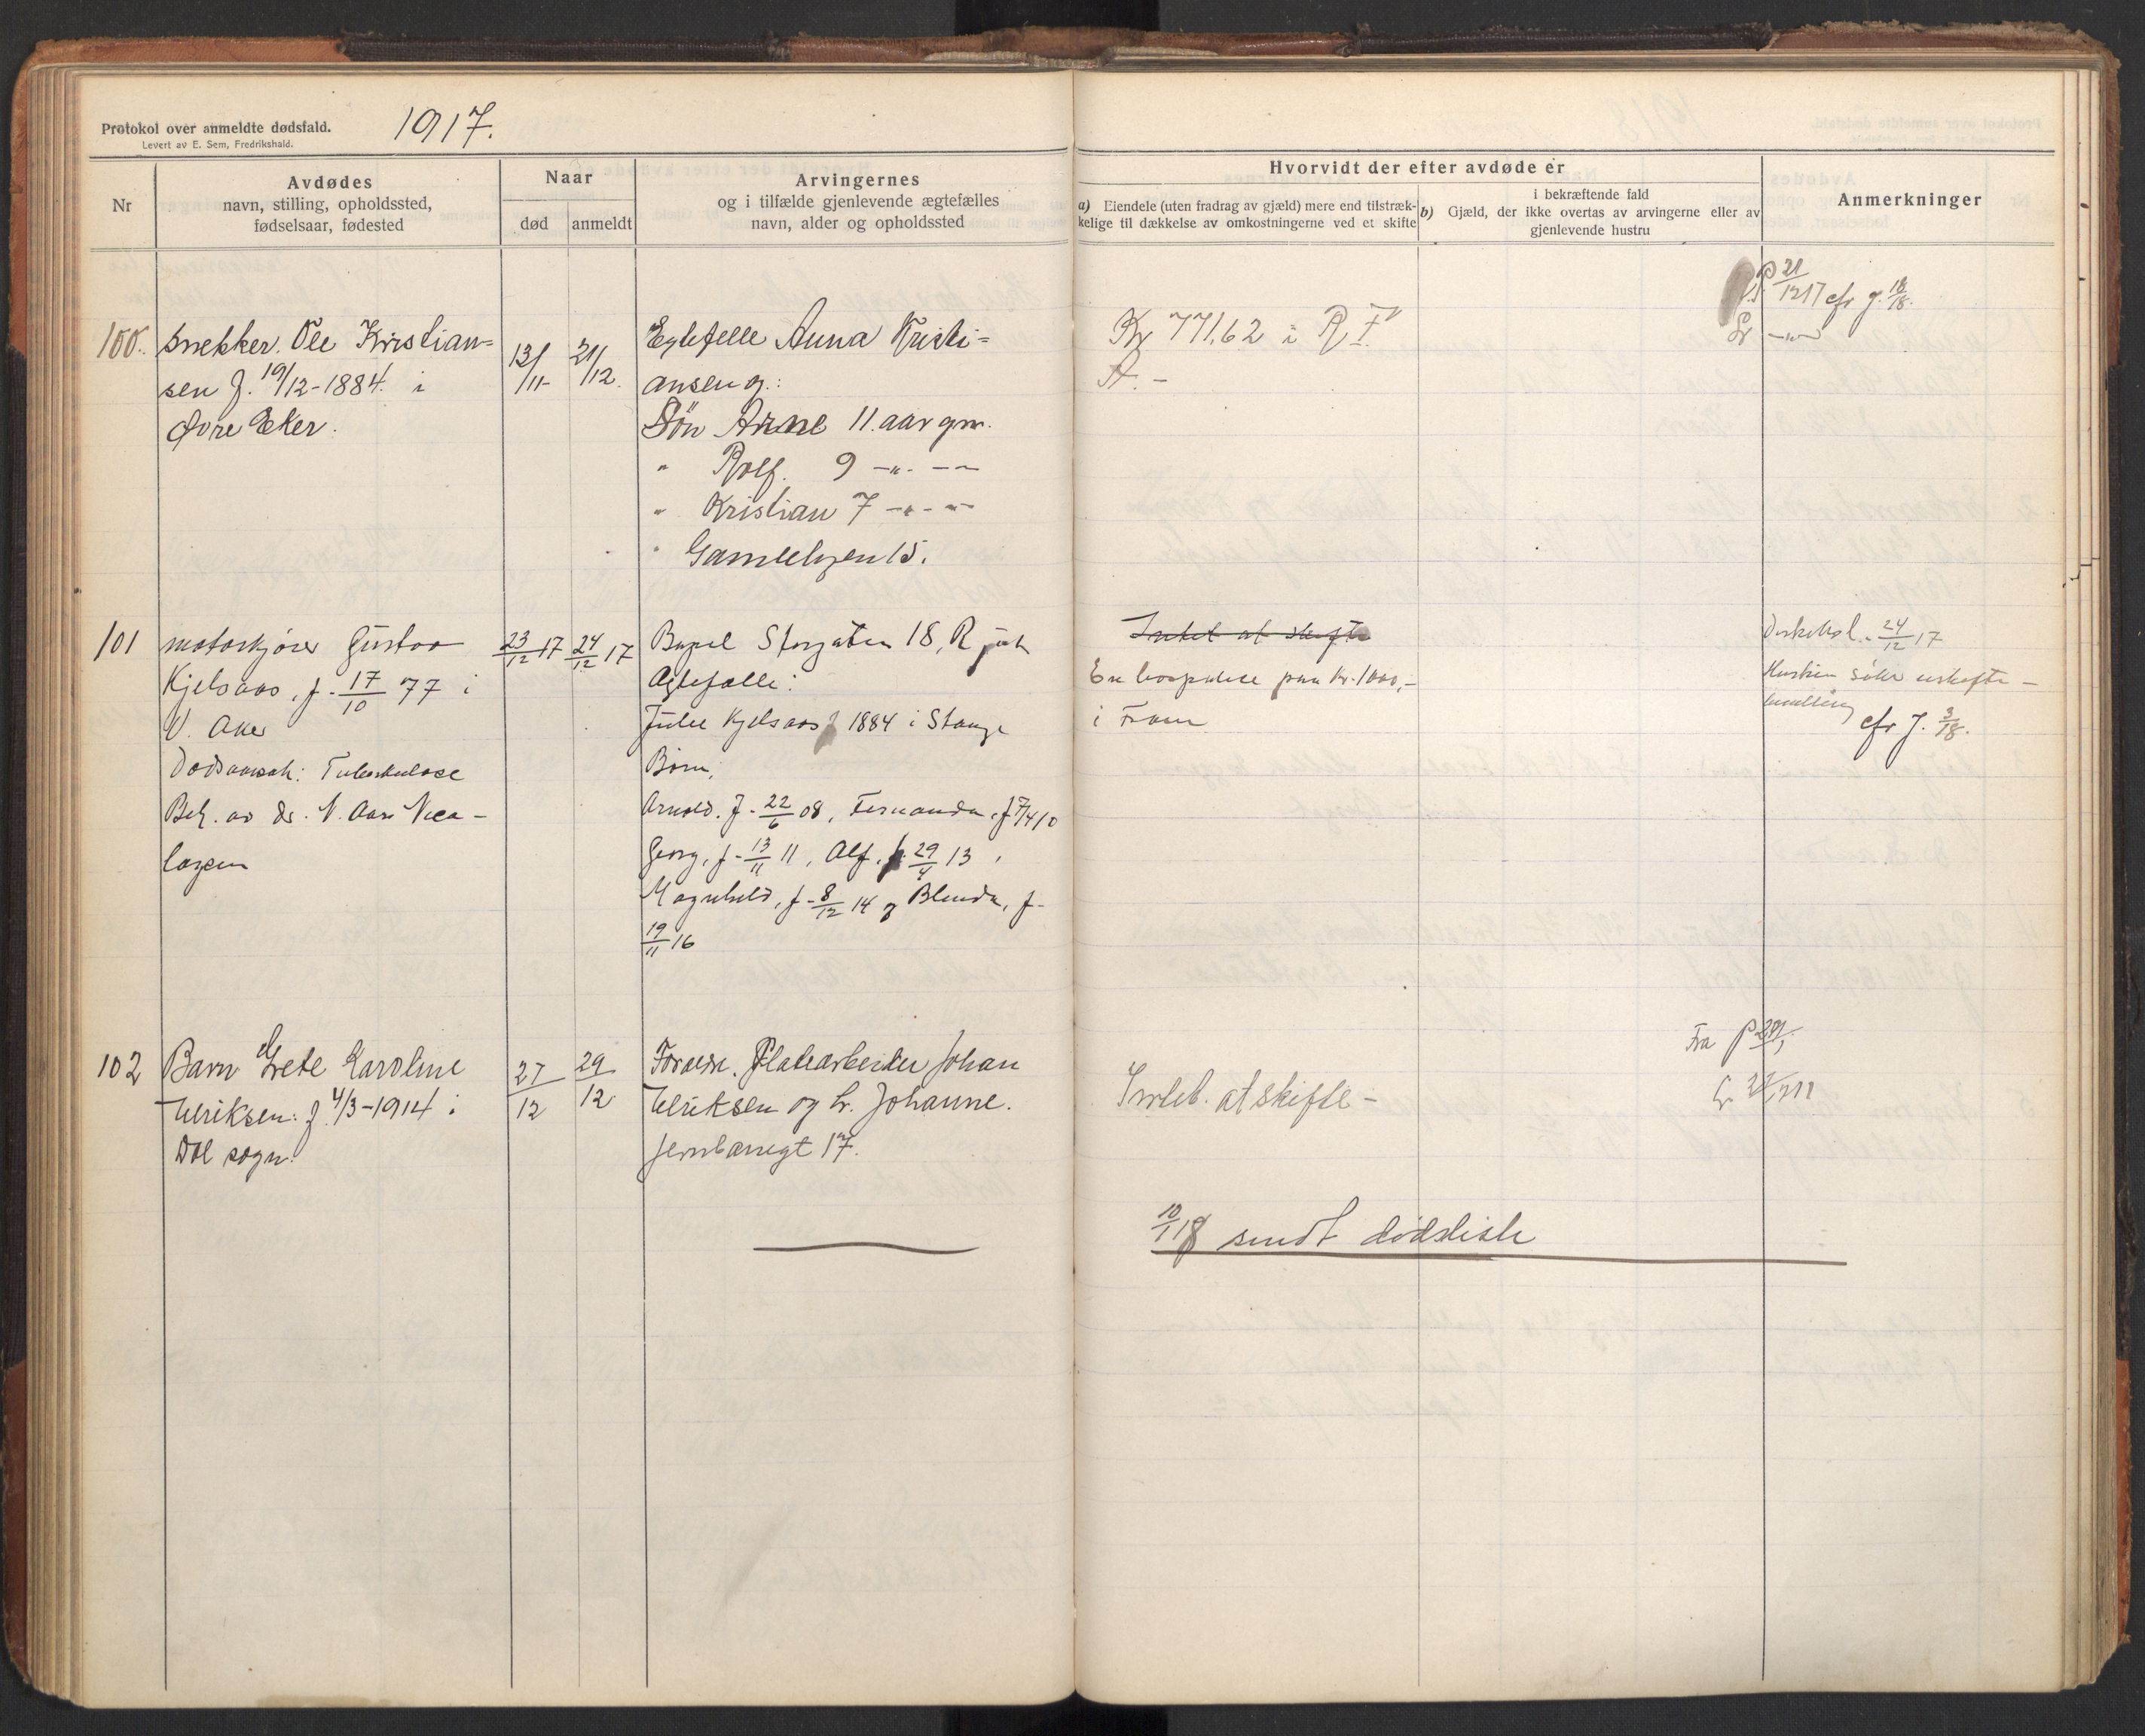 Protokol over anmeldte dødsfald.
1917.
Levert av E. Sem, Fredrikshald.
Nr
Avdødes
navn, stilling, opholdssted,
fødselsaar, fødested
Naar
død
anmeldt
Arvingernes
og i tilfælde gjenlevende ægtefælles
navn, alder og opholdssted
Hvorvidt der efter avdøde er
a) Eiendele (uten fradrag av gjæld) mere end tilstræk-
kelige til dækkelse av omkostningerne ved et skifte
i bekræftende fald
b) Gjæld, der ikke overtas av arvingerne eller av
gjenlevende hustru
Anmerkninger
100.
Snekker. Ole Kristian=
sen f. 19/12-1884. i
Øvre Eker.
13/11-
21/12.
Egtefelle Anna Kristi=
ansen og:
Søn Arne 11. aar gm.
" Rolf. 9 -"- -"-
" Kristian 7 -"- -"-
" Gamlebyen 15.
Kr 771.62 i
21/12 17 cfr J. 18/18.
-"-
101
motorkjører Gustav
Kjelsaas, f. 17/10 77 i
V. Aker
Dødsaarsak: Tuberkulose
Beh. av dr. N. Aars Nico-
laysen
23/12 17
24/12 17
Bopel Storgaten 18,
Ægtefælle:
Julie Kjelsaas f 1884 i Stange
Børn:
Arnold. f. 22/6 08, Fernanda, f 7/4 10
Georg, f. 13/11 11, Alf, f. 29/4 13,
Magnhild, f. 8/12 14 og Blenda, f.
19/11 16
Intet at skifte
En livspolice paa kr. 1000,-
i Fram
24/12 17
Husken søker uskifte-
behandling
cfr J. 3/18.
102
Barn Grete Karoline
Ulriksen: f. 4/3-1914 i
Dol sogn.
27/12
29/12
Foræld. Platearbeider Johan
Ulriksen og h. Johanne.
Jernbanegt 17.
Intet. at skifte -
Fra P
10/1 18 sendt dødsliste